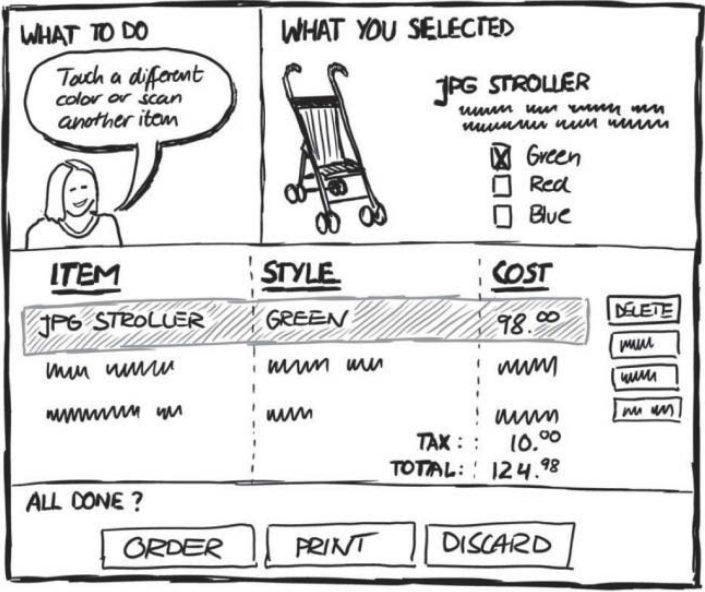 WHAT TO DO
Touch a different
color or scan
another item
WHAT YOU SELECTED
JPG STROLLER
Green
Red
Blue
ITEM STYLE COST
JPG STROLLER GREEN 98.00 DELETE
TAX: : 10.00
TOTAL: : 124.98
ALL DONE?
ORDER PRINT DISCARD